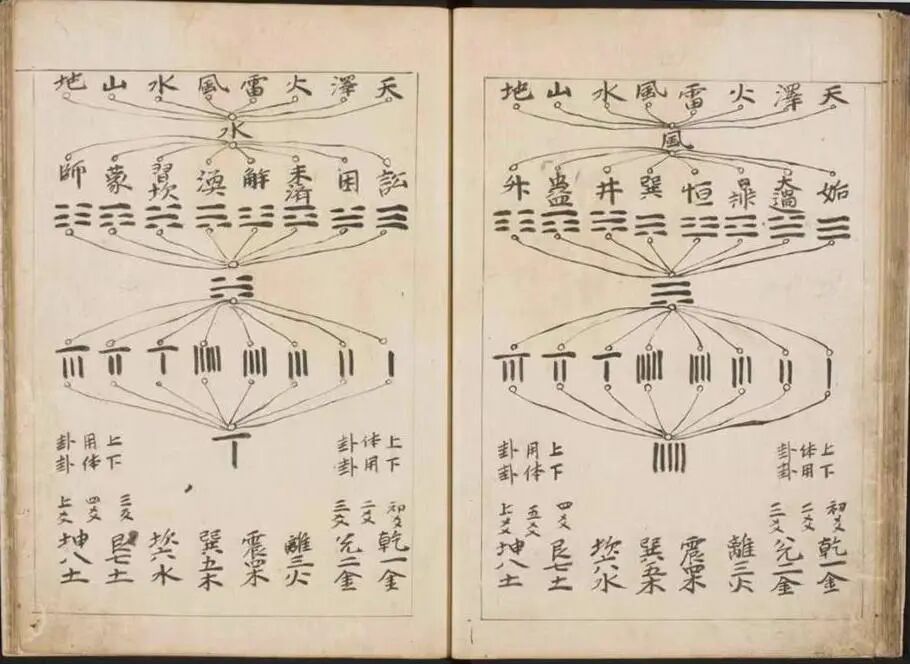 天 澤 火 雷 風 水 山 地
風
姤 大過 鼎 恒 巽 井 蠱 升
上体卦
下用卦
上用卦
下体卦
初爻 二爻 三爻 四爻 五爻 上爻
乾一金 兌二金 離三火 震四木 巽五木 坎六水 艮七土 坤八土
天 澤 火 雷 風 水 山 地
水
訟 困 未濟 解 渙 習坎 蒙 師
上体卦
下用卦
上用卦
下体卦
初爻 二爻 三爻 三爻 四爻 上爻
乾一金 兌二金 離三火 震四木 巽五木 坎六水 艮七土 坤八土